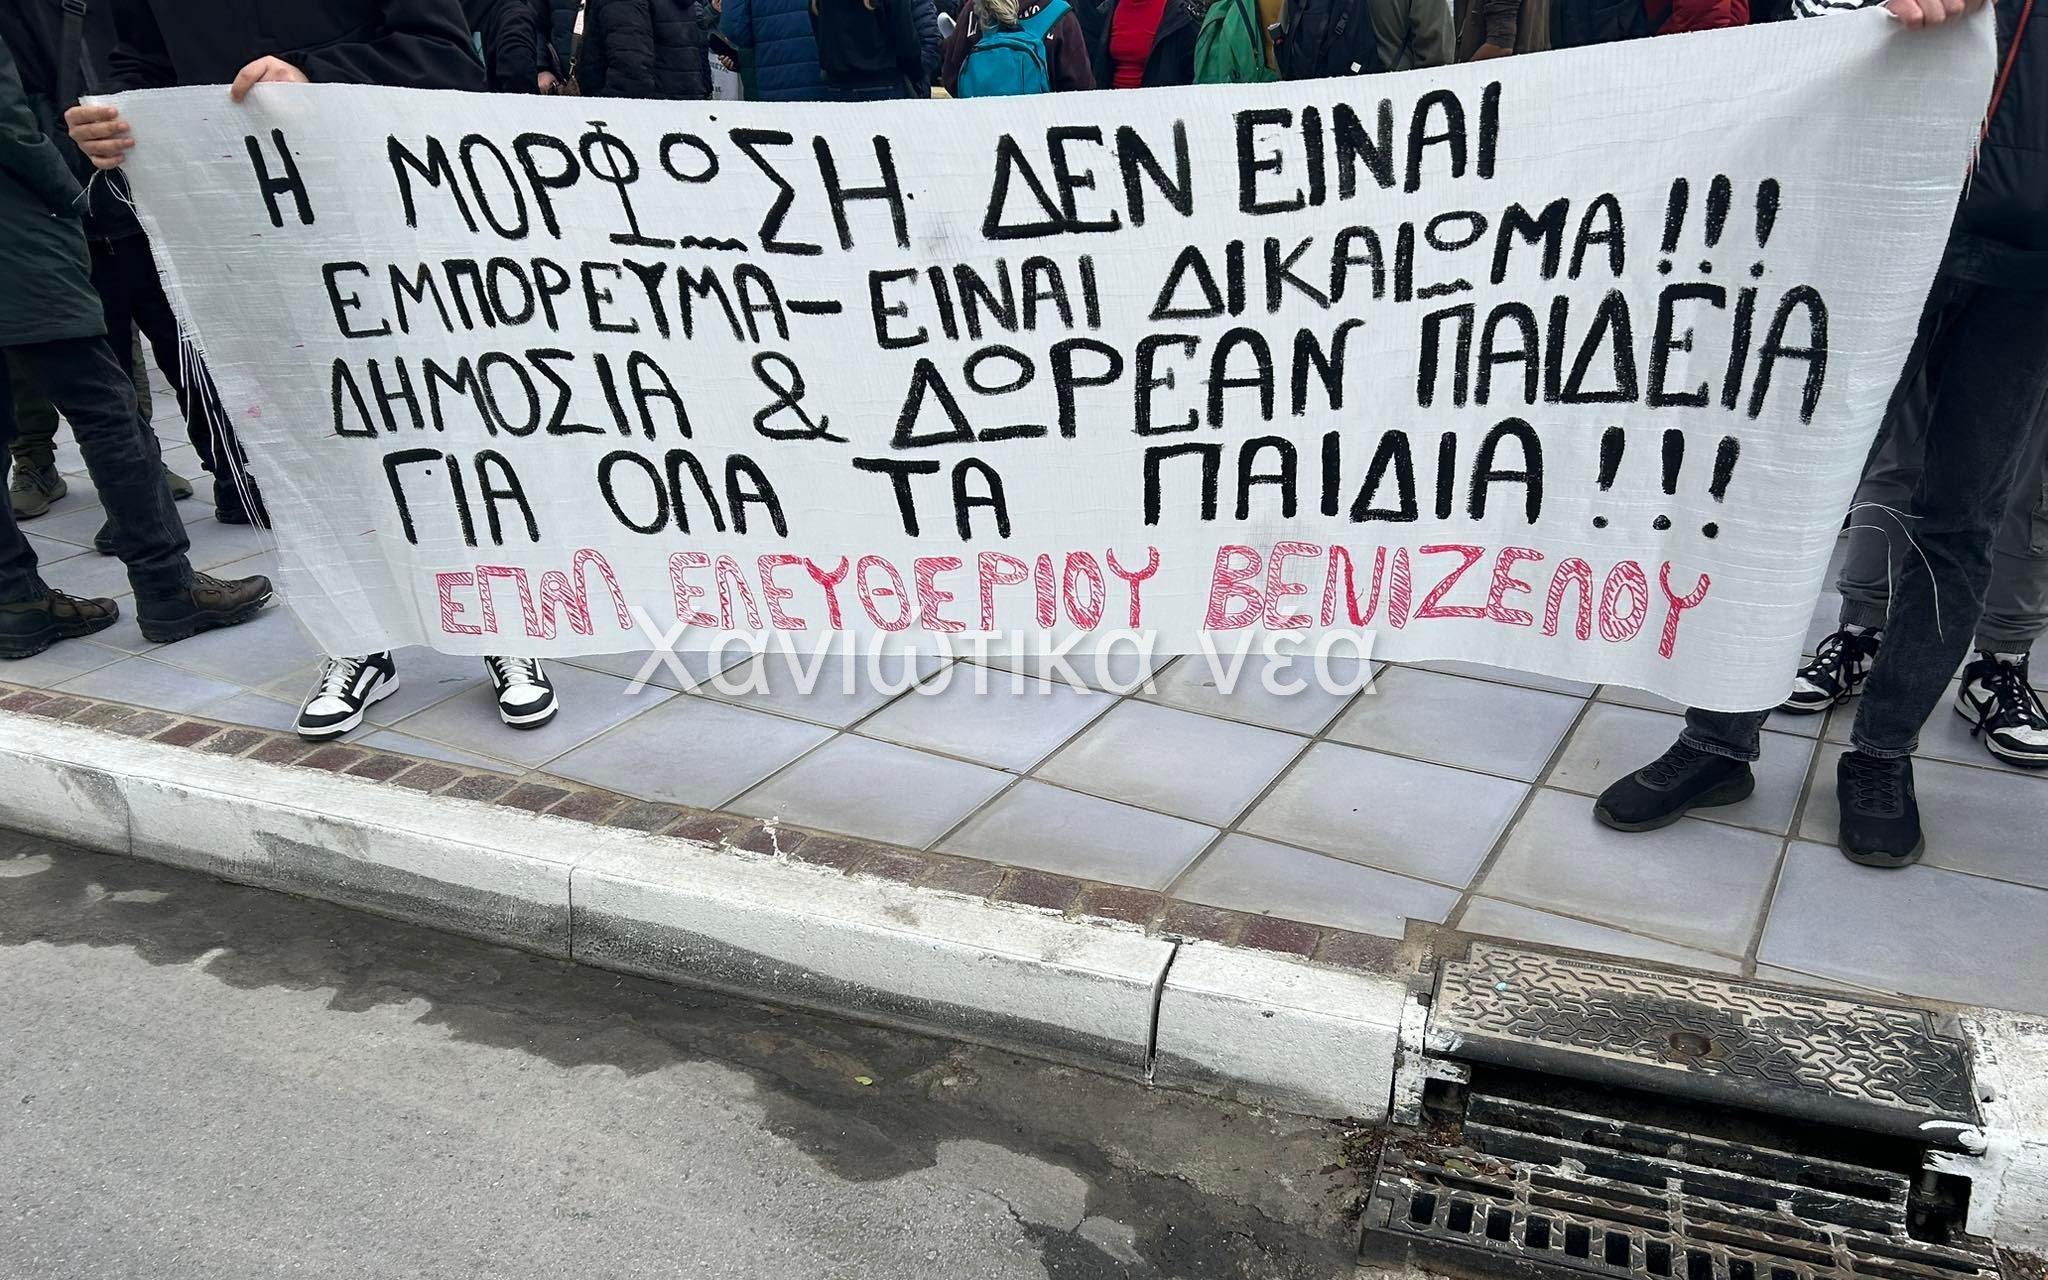 Η ΜΟΡΦΩΣΗ ΔΕΝ ΕΙΝΑΙ
ΕΜΠΟΡΕΥΜΑ - ΕΙΝΑΙ ΔΙΚΑΙΩΜΑ!!!
ΔΗΜΟΣΙΑ & ΔΩΡΕΑΝ ΠΑΙΔΕΙΑ
ΓΙΑ ΟΛΑ ΤΑ ΠΑΙΔΙΑ!!!
ΕΠΑΛ ΕΛΕΥΘΕΡΙΟΥ ΒΕΝΙΖΕΛΟΥ
Χανιώτικα νέα